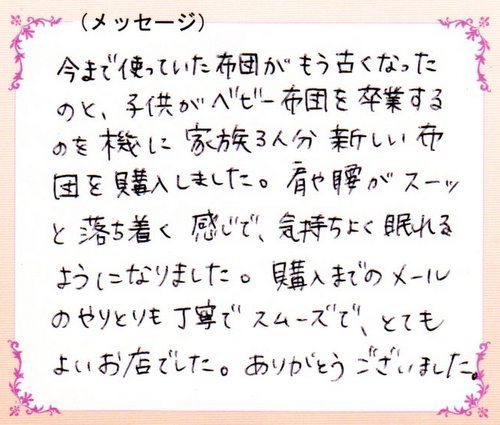 （メッセージ）
今まで使っていた布団がもう古くなった
のと、子供がベビー布団を卒業する
のを機に家族3人分新しい布
団を購入しました。肩や腰がスーッ
と落ち着く感じで、気持ちよく眠れる
ようになりました。購入までのメール
のやりとりも丁寧でスムーズで、とても
よいお店でした。ありがとうございました。